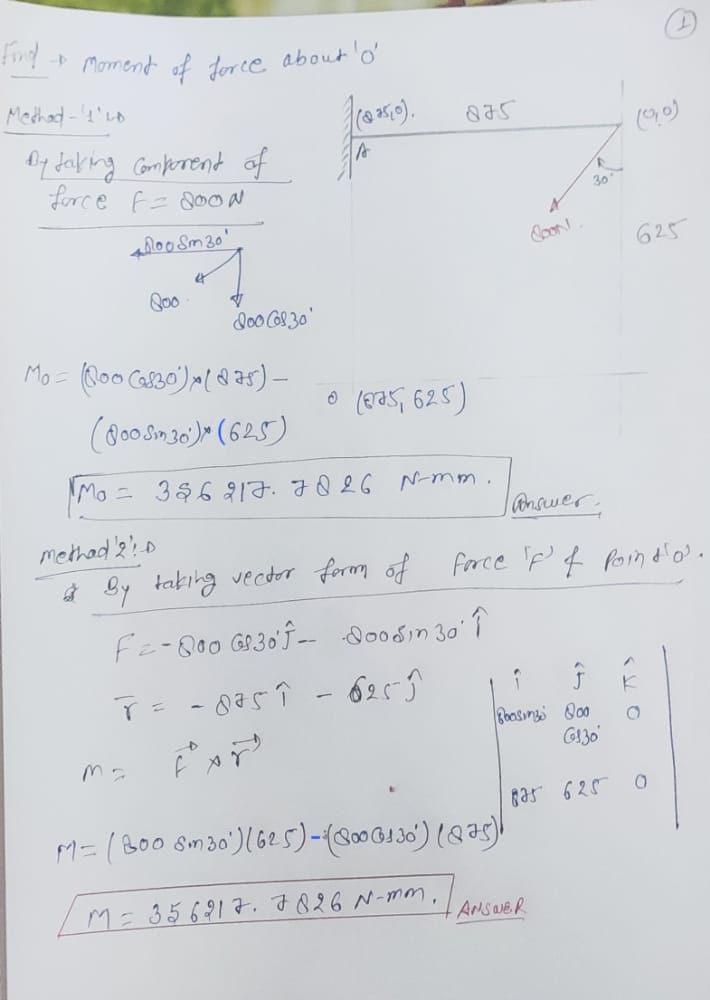 1
Find → Moment of force about 'O'
Method-'1' :→
By taking component of
force F = 800 N
800 Sin30°
800
800 Cos30°
(875,0).
875
(0,0)
A
30°
800N.
625
O (875, 625)
Mo = (800 Cos30°) × (875) -
(800 Sin30°) × (625)
Mo = 356217.7826 N-mm.
Answer.
Method '2' :→
By taking vector form of Force 'F' & Point 'O'.
F = -800 Cos30° ĵ - 800 Sin30° î
r̄ = - 875 î - 625 ĵ
M = F⃗ × r⃗
î ĵ K̂
800Sin30° 800 Cos30° 0
875 625 0
M = (800 Sin30°)(625) - (800 Cos30°)(875)
M = 356217.7826 N-mm.
ANSWER